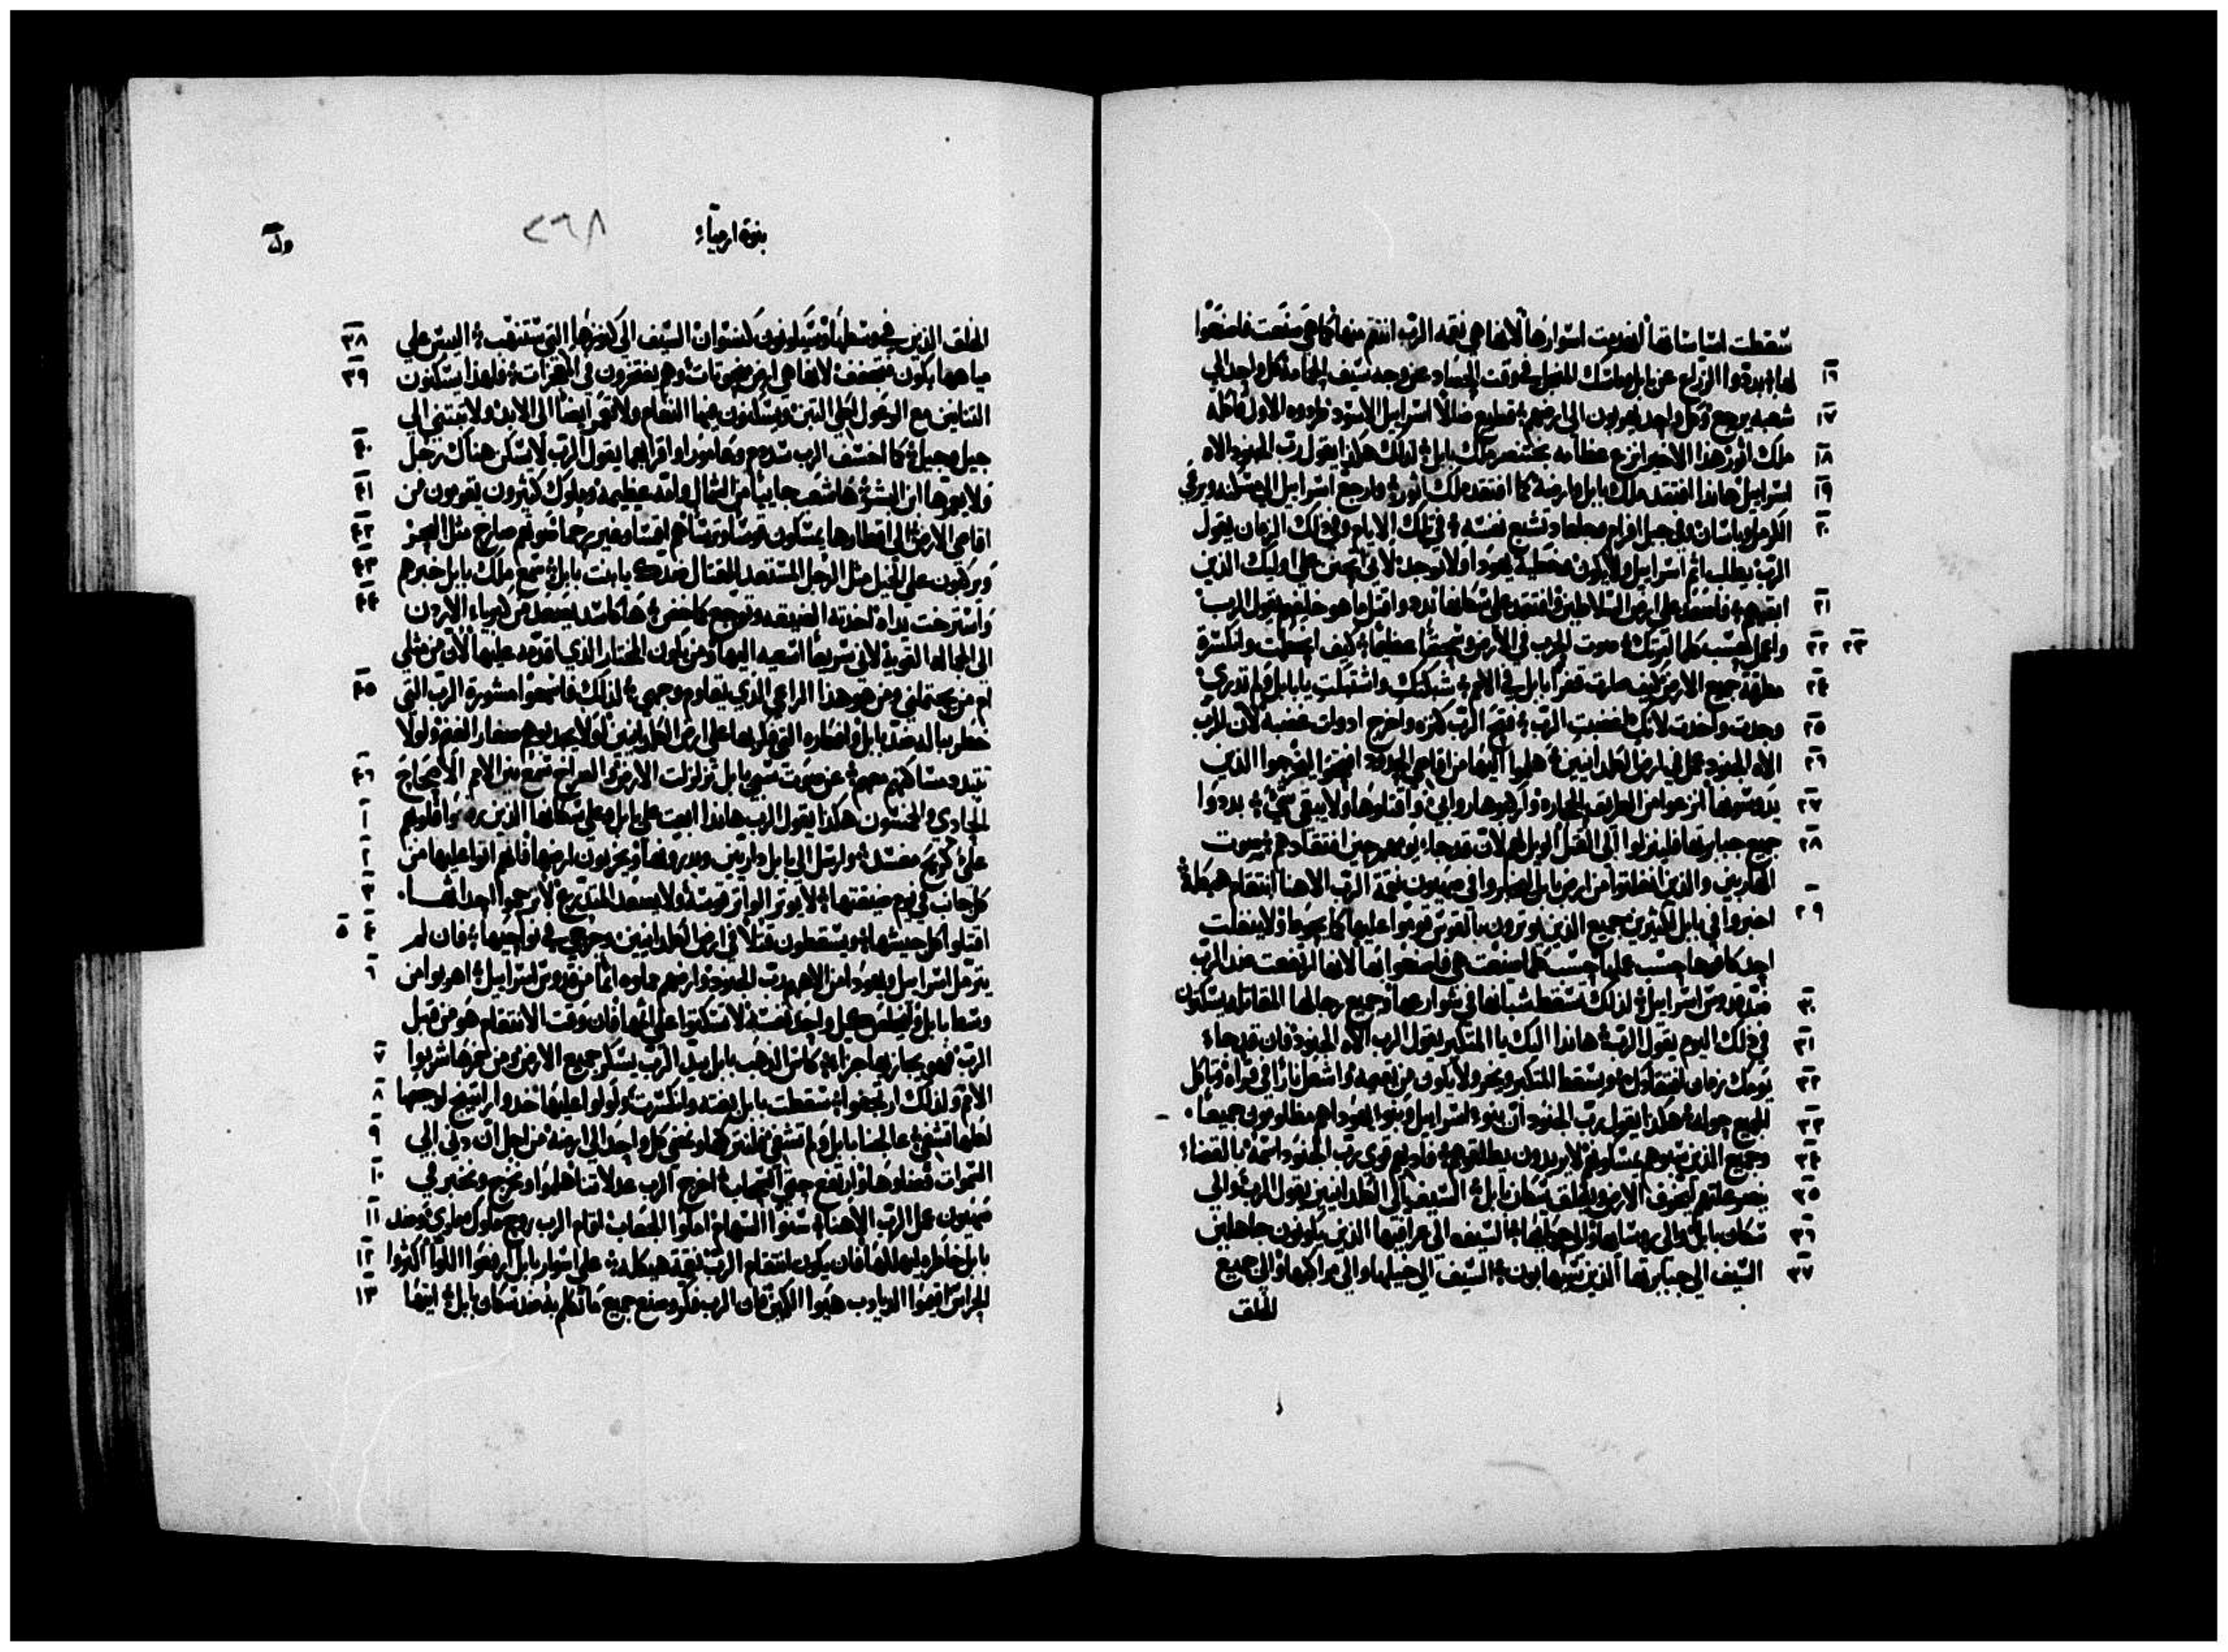 سقطت اساساتها انهدمت اسوارها لانها هي نقمه الرب انتقم منها كما هي صنعت فاصنعوا
١٦ لها بددوا الزراع عن بابل وماسك المنجل في وقت الحصاد عن وجه سيف الحمامه كل واحد الي
١٧ شعبه يرجع وكل واحد يهربون الي ارضهم قطيع ضالا اسراييل الاسود طردوه الاول اكله
١٨ ملك اثور هذا الاخير نزع عظامه بختنصر ملك بابل لذلك هكذا يقول رب الجنود الاه
١٩ اسراييل هانذا افتقد ملك بابل وارضه كما افتقدت ملك اثور وارجع اسراييل الي مسكنه ويرعي
٢٠ الكرمل وباسان وفي جبل افرام وجلعاد تشبع نفسه في تلك الايام وفي ذلك الزمان يقول
الرب يطلب اثم اسراييل ولا يكون وخطية يهودا ولا توجد لاني اتحنن علي اوليك الذين
٢١ ابقيهم فاصعد علي ارض السلاطين وافتقد علي سكانها بدد واقتل ما هو خلفهم يقول الرب
٢٢ ٢٣ واعمل كحسب كلما امرتك صوت الحرب في الارض وسحقا عظيما كيف انحطت وانكسرة
٢٤ مطرقة جميع الارض كيف صارت قفرا بابل في الامم شبكتك واشتبكت يا بابل ولم تدري
٢٥ وجدت واخدت لانك اغضبت الرب فتح الرب كنزه واخرج ادوات غضبه لان للرب
٢٦ الاه الجنود عمل في ارض الكلدانيين هلموا اليها من اقاصي الحدود افتحوا ليخرجوا الذين
٢٧ يدوسونها انزعوا من الطريق الحجاره واكبوها روابي واقتلوها ولا يبقي شي بددوا
٢٨ جميع جبابرتها فلينزلوا الي القتل الويل لهم لان قد جاء يومهم حين افتقادهم صوت
الهاربين والذين انفلتوا من ارض بابل ليخبروا في صهيون نقمة الرب الاهنا انتقام هيكله
٢٩ اخبروا في بابل لكثيرين جميع الذين يوترون بالقوس قوموا عليها كما يحوطها ولا ينفلت
احد كافوها حسب عملها حسب كلما صنعت هي فاصنعوا بها لانها ارتفعت ضد الرب
٣٠ ضد قدوس اسراييل لذلك تسقط شبانها في شوارعها وجميع رجالها المقاتله يسكتون
٣١ في ذلك اليوم يقول الرب هانذا اليك يا المتكبر يقول الرب الاه الجنود فان قد جاء
٣٢ يومك زمان افتقادك ويسقط المتكبر ويخر ولا يكون من يقيمه واشعل نارا في قراه وتاكل
٣٣ الجميع حوله هكذا يقول رب الجنود ان بنوا اسراييل وبنوا يهودا هم مظلومون جميعا
٣٤ وجميع الذين سبوهم يمسكونهم لا يريدون يطلقوهم فاديهم قوي رب الجنود اسمه بالقضاء
٣٥ يخصم علتهم ليخوف الارض ويقلق سكان بابل السيف الي الكلدانيين يقول الرب والي
٣٦ سكان بابل والي روسايها والي حكمايها السيف الي عرافيها الذين يكونون جاهلين
٣٧ السيف الي جبابرتها الذين يهابون السيف الي خيلها والي مراكبها والي جميع
الخلق
نبوة ارمياء
٢٦٨
٣٨ الخلق الذين في وسطها ويكونون كنسوان السيف الي كنوزها التي ستنهب اليبس علي
٣٩ مياهها يكون فتجفف لانها هي ارض منحوتات وهم يفتخرون في المعجزات فلهذا يسكنون
التنانين مع الوعول اكلي التين ويسكنون فيها النعام ولا تعمر ايضا الي الابد ولا تبتني الي
٤٠ جيل وجيل كما اخسف الرب سدوم وعامورا وقراهما يقول الرب لا يسكن هناك رجل
٤١ ولا يعمرها ابن البشر ها شعب جاييا من الشمال وامه عظيمه وملوك كثيرون يقومون من
٤٢ اقاصي الارض الي اقطارها يمسكون قوسا وترسا هم اقسا وغير رحما صوتهم صارخ مثل البحر
٤٣ ويركبون علي الخيل مثل الرجل المستعد للقتال ضدك يا بنت بابل سمع ملك بابل خبرهم
٤٤ واسترخت يداه اخدته الضيقه وتوجع كماخض ها كاسد يصعد من كبرياء الاردن
الي الجماله القوية لاني سريعا اسعيه اليها ومن يكون المختار الذي اقدمه عليها لان من مثلي
٤٥ او من يحتملني ومن هو هذا الراعي الذي يقاوم وجهي لذلك فاسمعوا مشورة الرب التي
خطر بباله ضد بابل وافكاره التي فكر بها علي ارض الكلدانيين لولا يجدبوهم صغار الغنم ولولا
٤٦ تتبدد مساكنهم معهم عن صوت سبي بابل تزلزلت الارض والصراخ سمع بين الامم الاصحاح
١ الحادي والخمسون هكذا يقول الرب هانذا ابعث علي بابل وعلي سكانها الذين رفعوا قلوبهم
٢ علي كريح مفسد وارسل الي بابل داريين ويدرونها ويخربون ارضها فانهم اتوا عليها من
٣ كل جانب في يوم ضيقتها لا يوتر الواتر قوسه ولا يصعد المتدرع لا ترحموا احداثها
٤ ٥ اقتلوا كل جيشها ويسقطون قتلا في ارض الكلدانيين وجرحي في نواحيها فان لم
٦ يترمل اسراييل ويهودا من الاههم رب الجنود وارضهم مملوه اثما من قدوس اسراييل اهربوا من
وسط بابل وليخلص كل واحد نفسه لا تسكتوا علي اثمها فان وقت الانتقام هو من قبل
٧ الرب فهو يجازيها جزاء كاس الذهب بابل بيد الرب يسكر جميع الارض من خمرها شربوا
٨ الامم ولذلك ارتجفوا سقطت بابل بغته وانكسرت ولولوا عليها خدوا راتينج لوجعها
٩ لعلها تشفي عالجنا بابل ولم تشفي فلنتركها ونمضي كل واحد الي ارضه من اجل ان دني الي
١٠ السموات قضاوها وارتفع حتي السحاب اخرج الرب عدلاتنا هلموا ونخرج ونخبر في
١١ صهيون عمل الرب الاهنا سنوا السهام املوا الجعاب اقام الرب روح ملوك ماوي وضد
١٢ بابل خاطره ليهلكها فان يكون انتقام الرب نقمة هيكله علي اسوار بابل ارفعوا اللوا اكثروا
١٣ الحراس اقيموا الديادب هيوا الكمين فان الرب فكر وصنع جميع ما تكلم به ضد سكان بابل ايتها